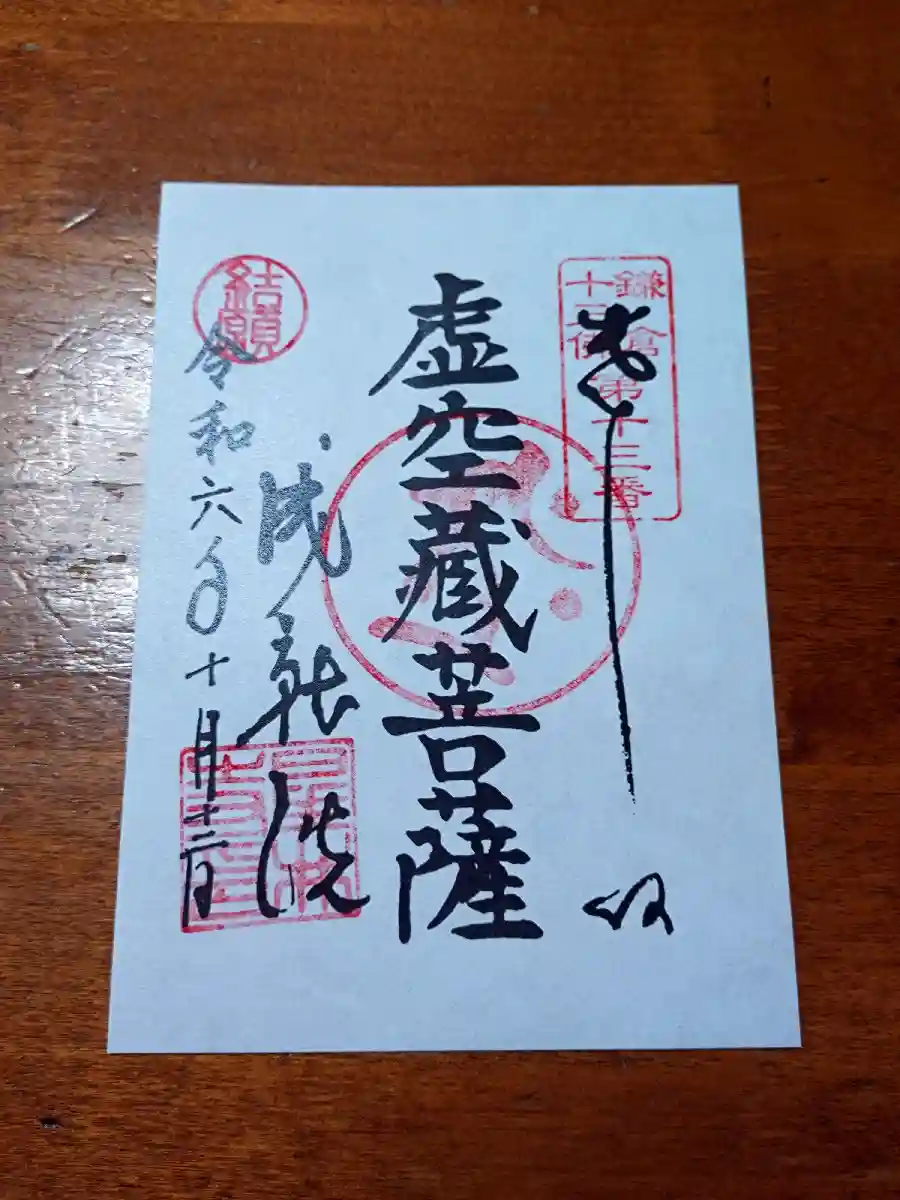 鎌倉
十三佛
第十三番
奉拝
虚空蔵菩薩
成就院
結願
令和六年十月十二日